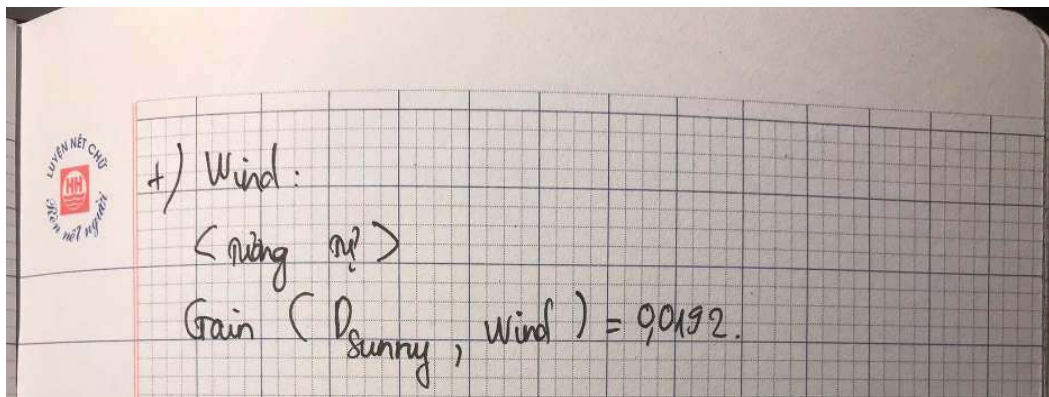 LUYỆN NÉT CHỮ
HH
Rèn nết người
+) Wind:
< tương tự >
Gain ( D_Sunny, Wind ) = 0,0192.